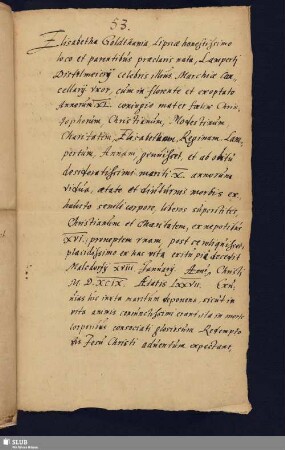 53.
Elisabetha Goldthania, Lipsiæ honestissimo
loco et parentibus præclaris nata, Lamperti
Distelmeierij celebris Marchiæ Can
cellarij vxor, cum in florente et exoptato
Annorum XL. coniugio mater Chris
tophorum Christianum,
Charitatem, Elisabetham, Reginam, Lam
pertum, Annam, et ab obitu
desideratissimi mariti X. annorum
vidua, ætate et diuturnis morbis ex
hausto senili corpore, liberos superstites,
Christianum et Charitatem, ex nepotibus
XVI. proneptem vnam, post se relinquens,
placidissimo ex hac vita exitu pia decessit
Malsdorff XVIII Januarij Anni Christi
M.D.XCIX. Ætatis LXXVII.
hic iuxta maritum reponens, sicut in
vita animis coniunctissimi ita in morte
corporibus consociati gloriosum Redempto
ris Jesu Christi aduentum expectant.
SLUB
Wir führen Wissen.